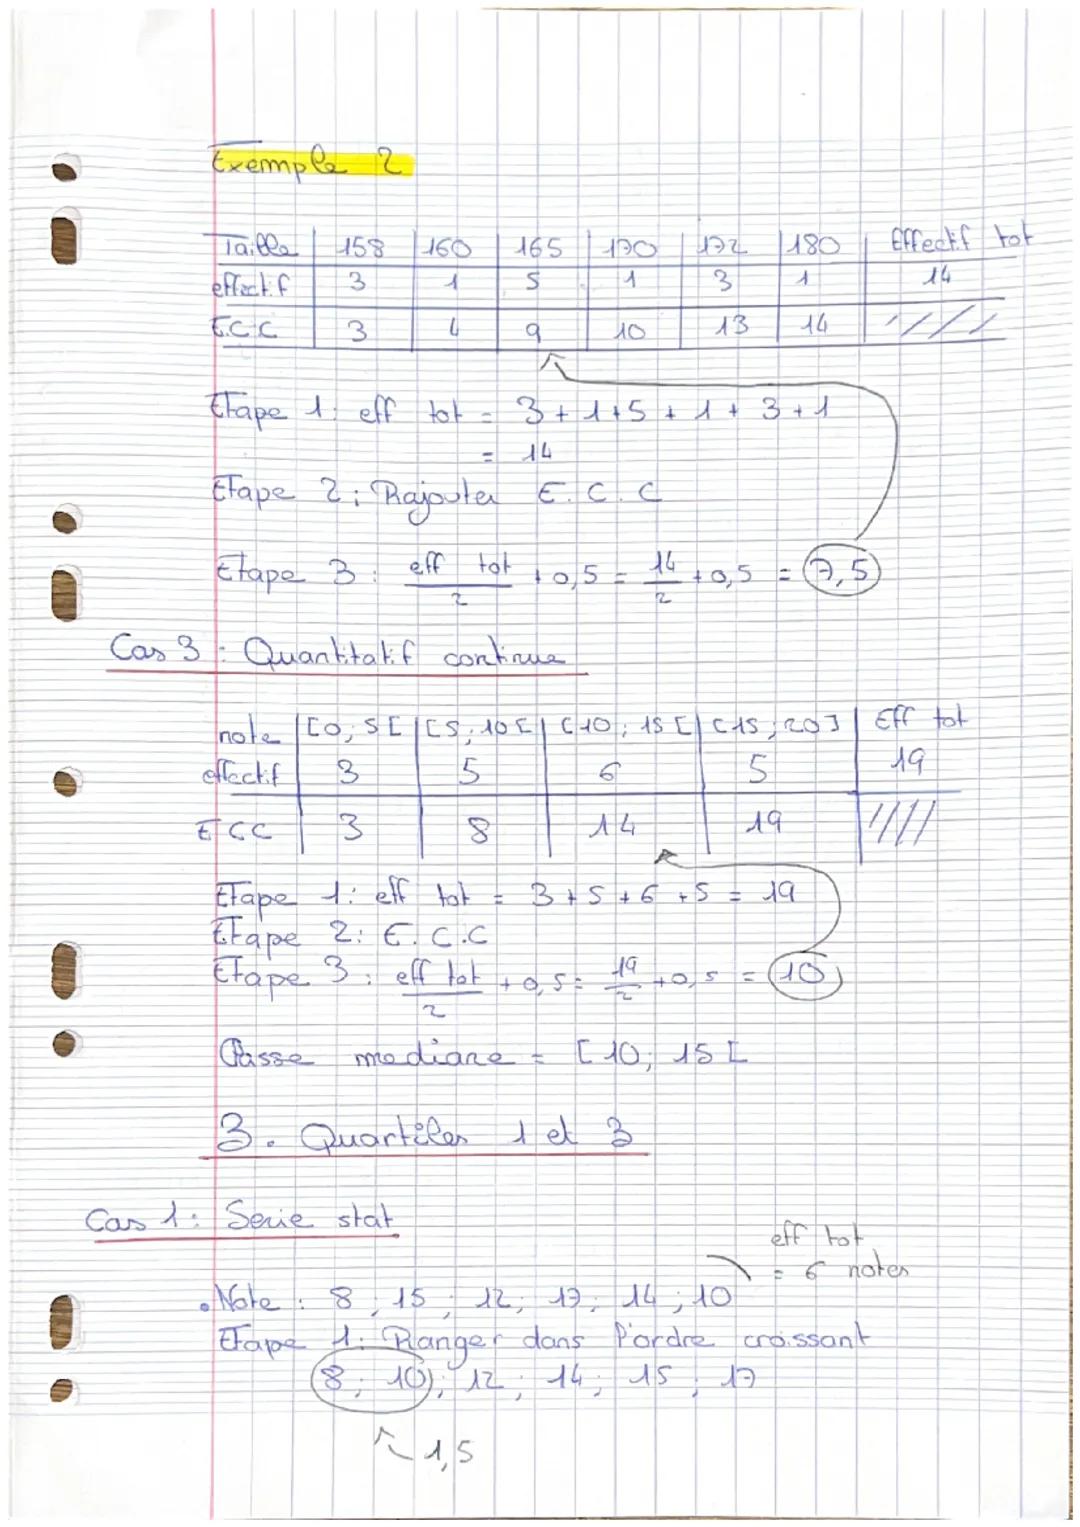 Exemple 2
Taille 158 160 165 170 172 180 Effectif tot
effectif 3 1 5 1 3 1 14
E.C.C 3 4 9 10 13 14
Etape 1: eff tot = 3 + 1 + 5 + 1 + 3 + 1
= 14
Etape 2: Rajouter E.C.C
Etape 3: eff tot / 2 + 0,5 = 14/2 + 0,5 = 7,5
Cas 3: Quantitatif continue
note [0; 5[ [5; 10[ [10; 15[ [15; 20] Eff tot
effectif 3 5 6 5 19
ECC 3 8 14 19
Etape 1: eff tot = 3 + 5 + 6 + 5 = 19
Etape 2: E.C.C
Etape 3: eff tot / 2 + 0,5 = 19/2 + 0,5 = 10
Classe mediane = [10; 15[
3. Quartiles 1 et 3
Cas 1: Serie stat
eff tot
= 6 notes
• Note: 8; 15; 12; 17; 14; 10
Etape 1: Ranger dans l'ordre croissant
8; 10; 12; 14; 15; 17
1,5